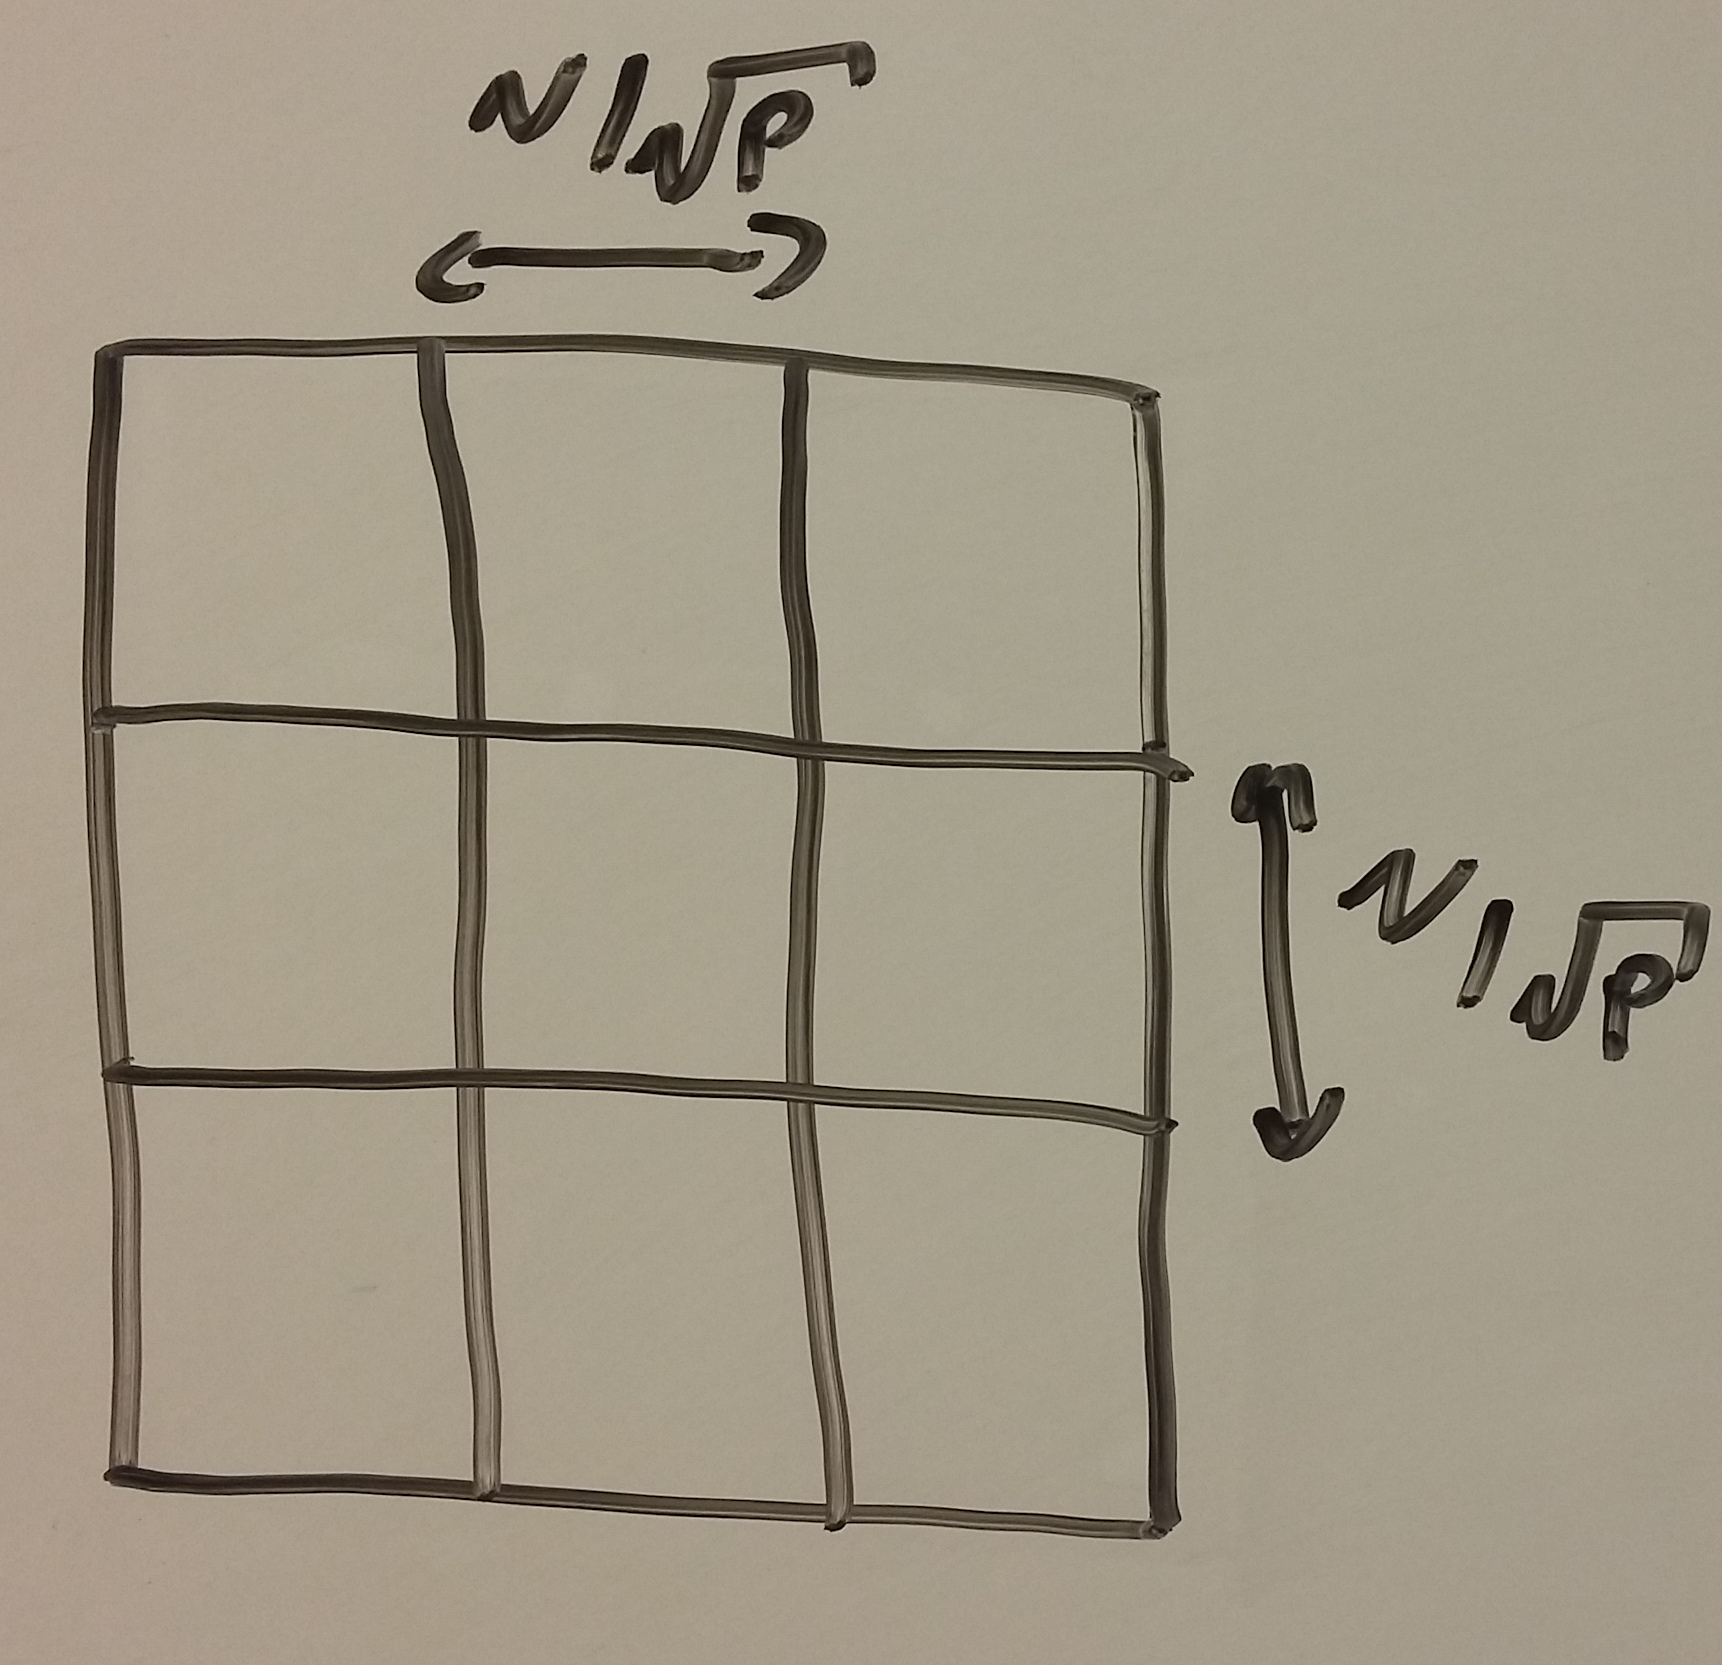 N/√P
N/√P